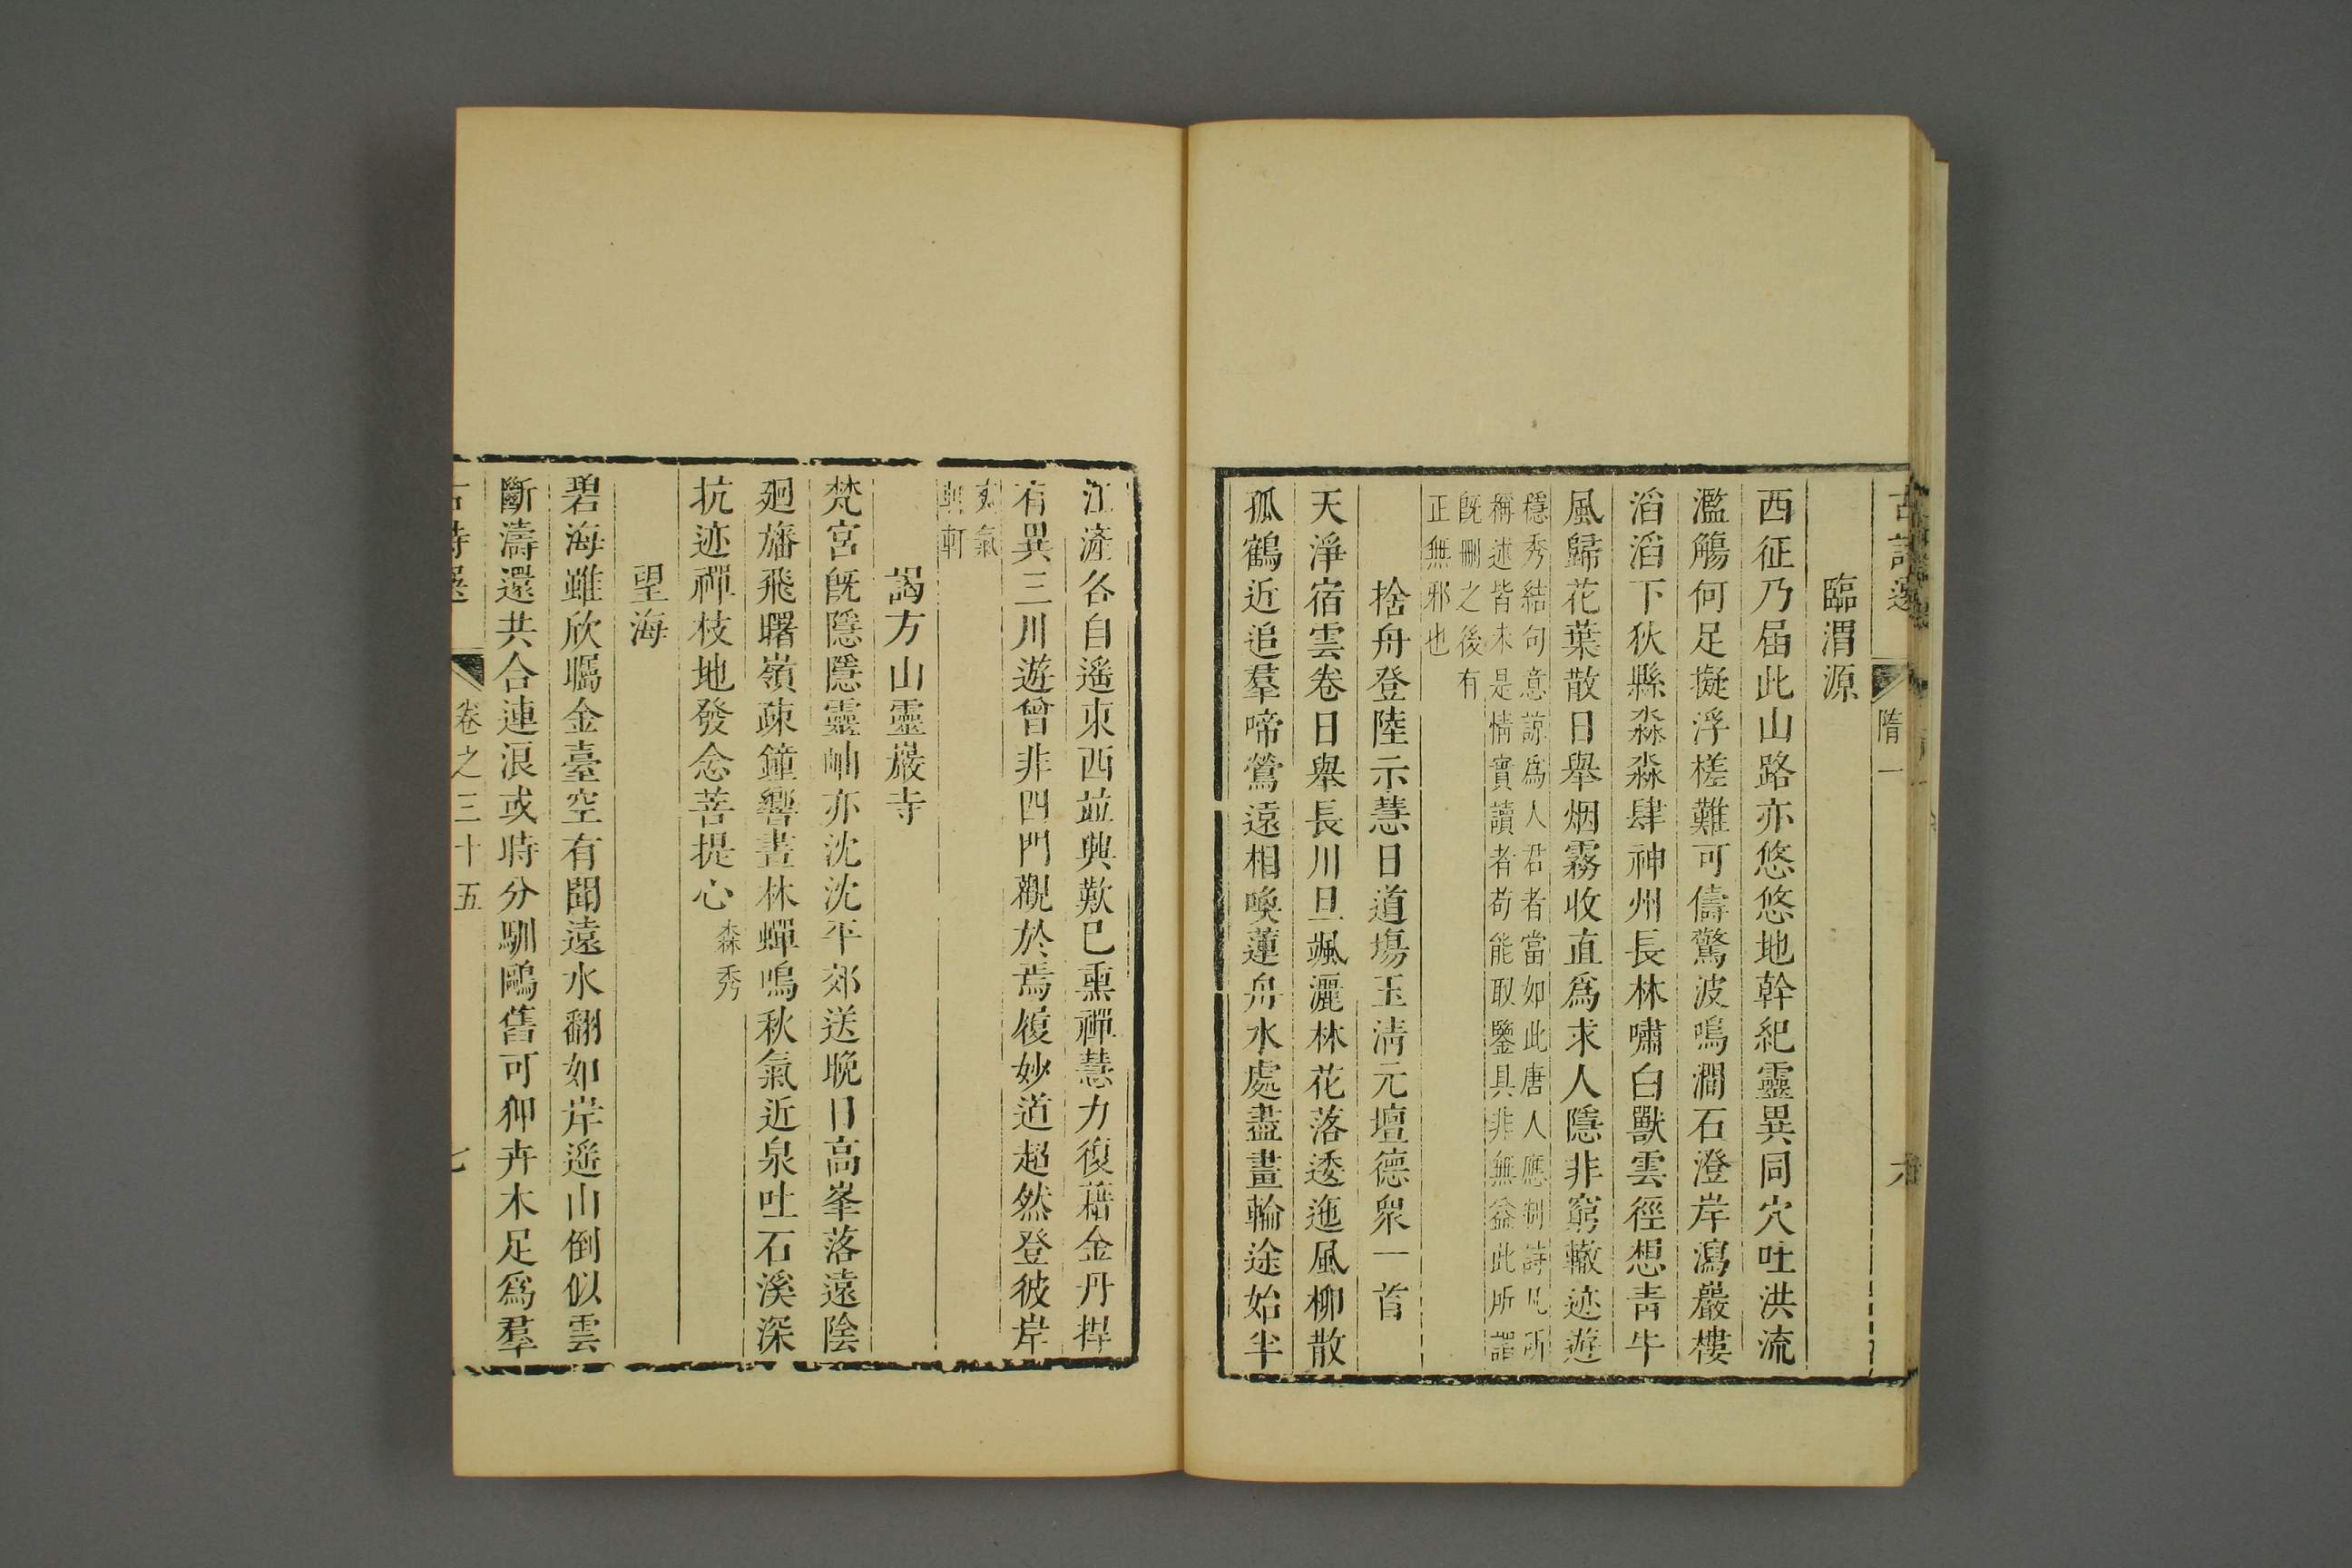 古詩選 隋一 六
臨渭源
西征乃届此山路亦悠悠地幹紀靈異同穴吐洪流
濫觴何足擬浮槎難可儔驚波鳴澗石澄岸瀉巖樓
滔滔下狄縣淼淼肆神州長林嘯白獸雲徑想青牛
風歸花葉散日舉烟霧收直爲求人隱非窮轍迹遊
穩秀結句意諒爲人君者當如此唐人應制詩凡所
稱述皆未是情實讀者苟能取鑒具非無益此所謂
旣刪之後有
正無邪也
捨舟登陸示慧日道塲玉淸元壇德衆一首
天淨宿雲卷日舉長川旦颯灑林花落逶迤風柳散
孤鶴近追羣啼鶯遠相喚蓮舟水處盡畫輪途始半
江淹各自遙東西並興歎已熏禪慧力復藉金丹捍
有異三川遊曾非四門觀於焉履妙道超然登彼岸
氣
軒
謁方山靈巖寺
梵宮旣隱隱靈岫亦沈沈平郊送晚日高峯落遠陰
廻旛飛曙嶺疎鐘響晝林蟬鳴秋氣近泉吐石溪深
抗迹禪枝地發念菩提心森秀
望海
碧海雖欣矚金臺空有聞遠水翻如岸遙山倒似雲
斷濤還共合連浪或時分馴鷗舊可狎卉木足爲羣
古詩選 卷之三十五 七